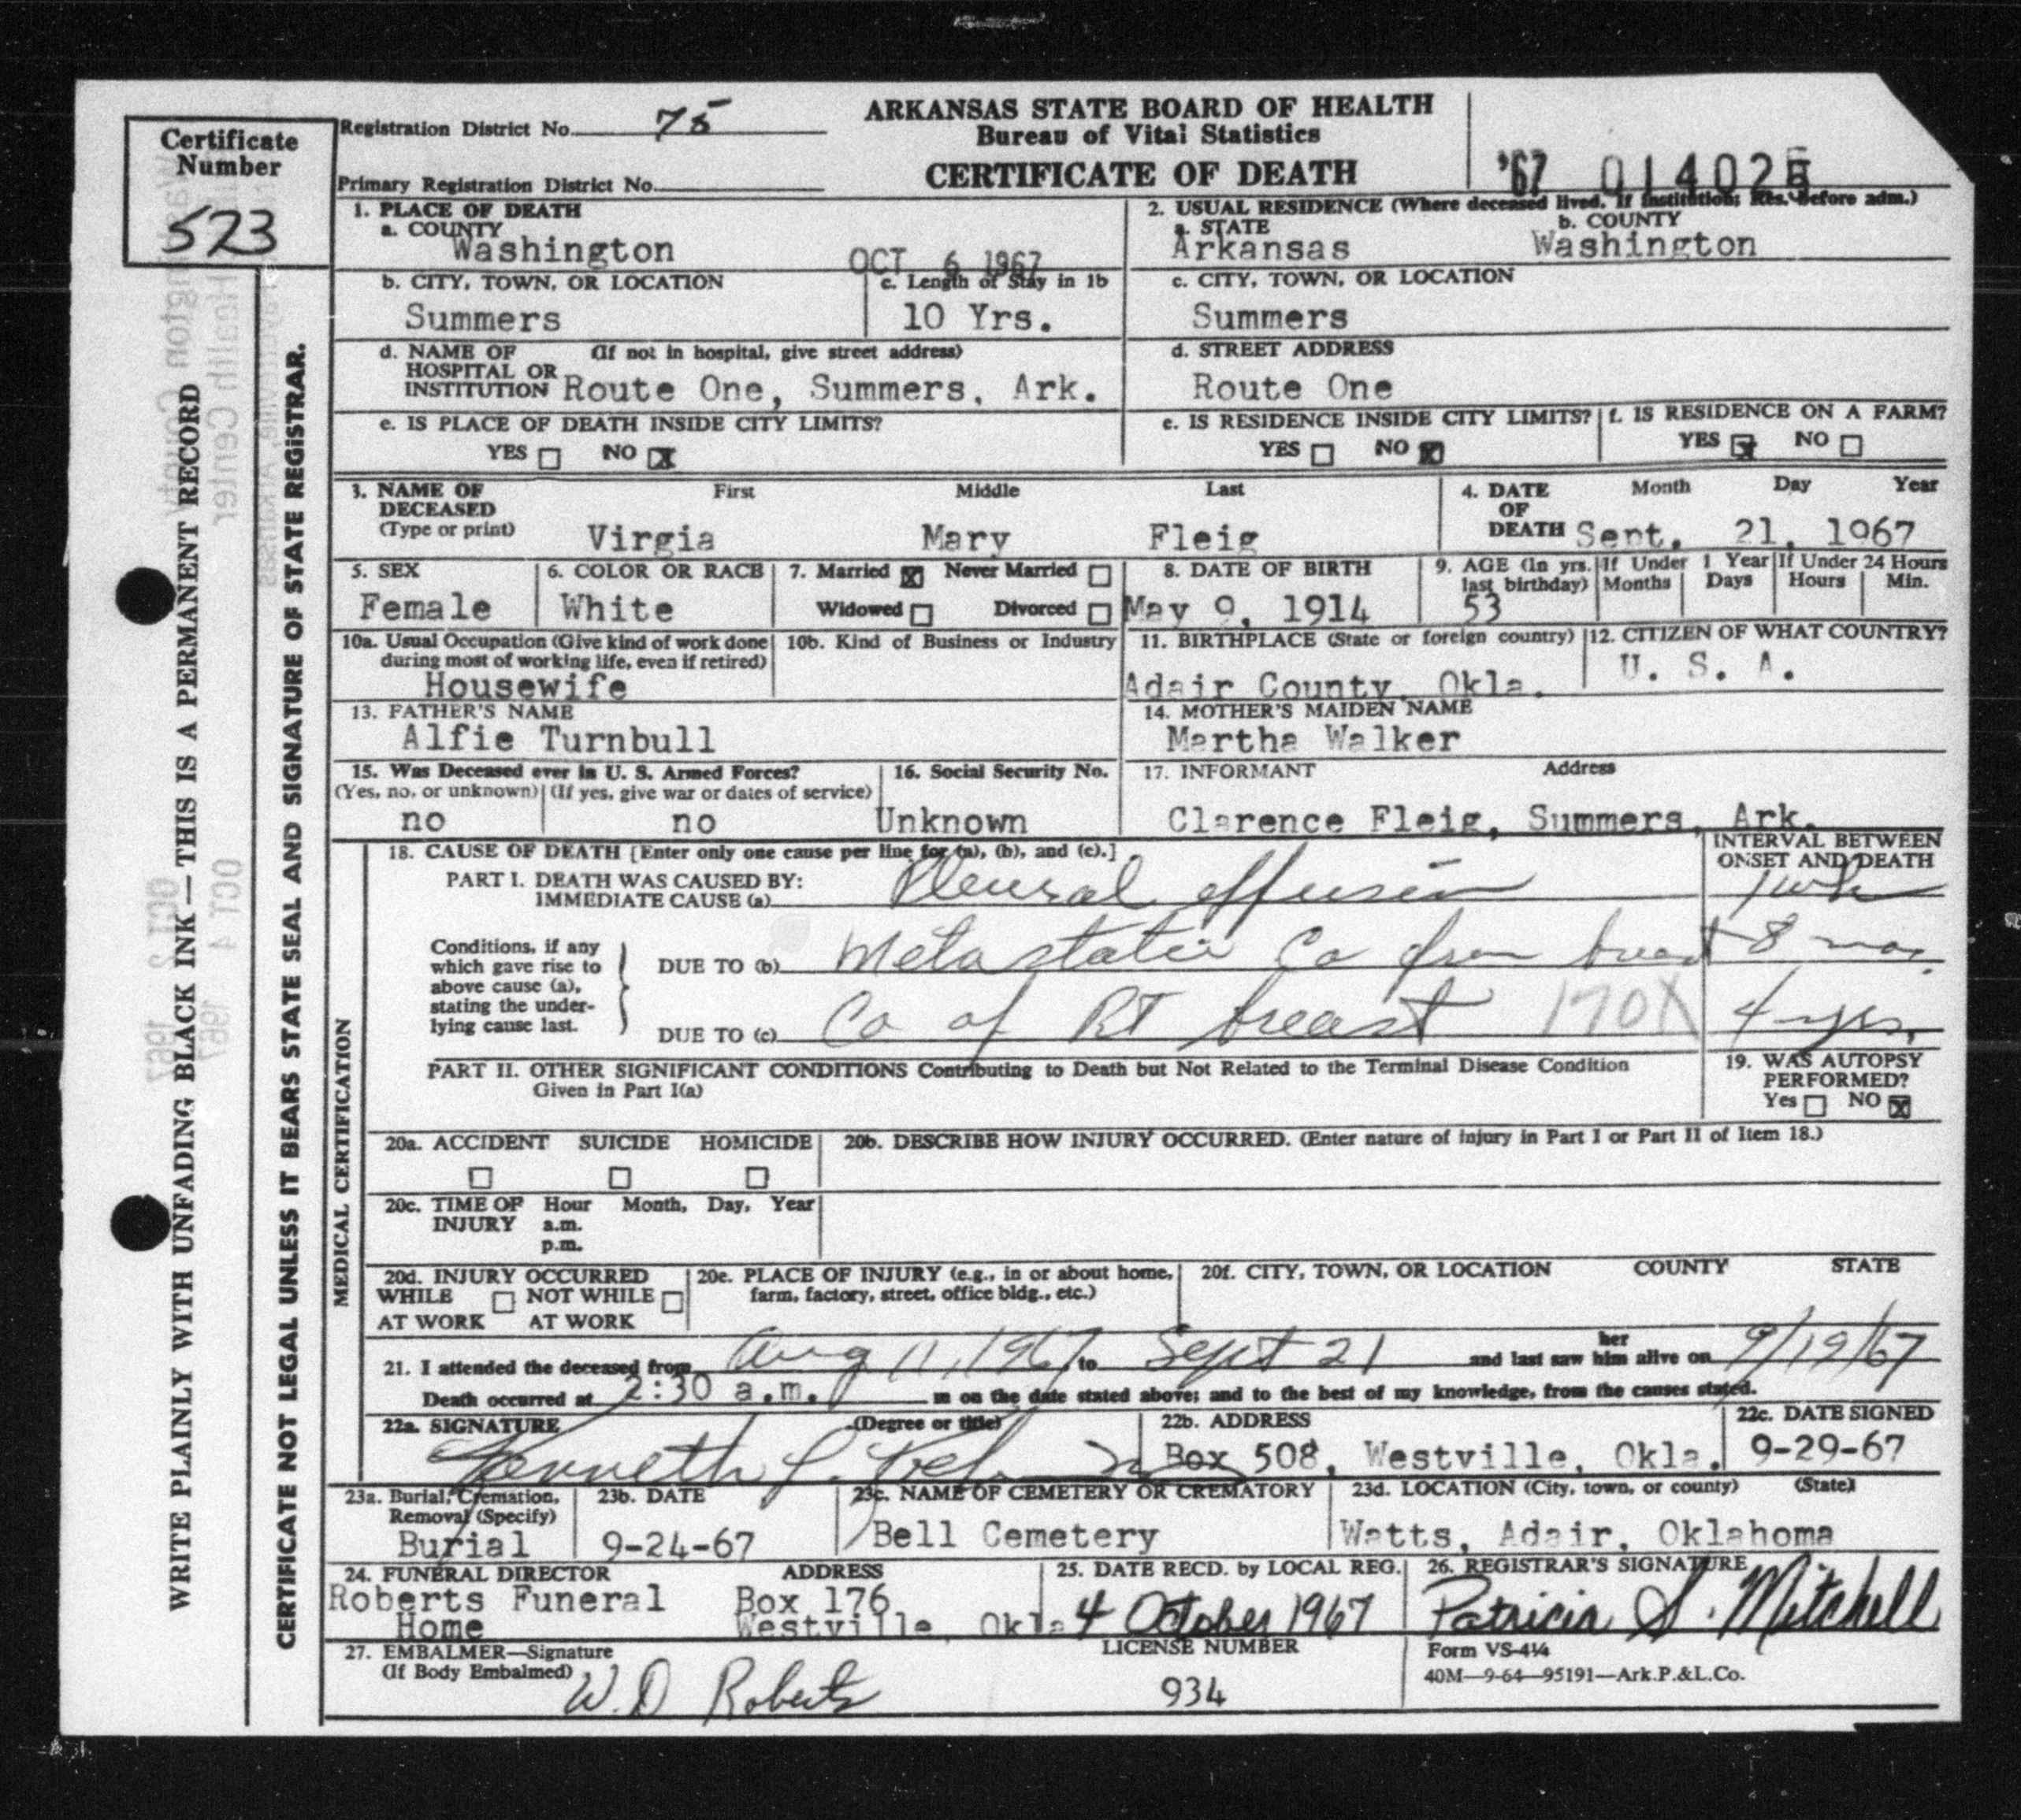 Certificate Number
523
Registration District No. 75
Primary Registration District No.
ARKANSAS STATE BOARD OF HEALTH
Bureau of Vital Statistics
CERTIFICATE OF DEATH
'67 01402
1. PLACE OF DEATH
a. COUNTY
Washington
OCT 6 1967
2. USUAL RESIDENCE (Where deceased lived. If institution; Res. before adm.)
a. STATE b. COUNTY
Arkansas Washington
b. CITY, TOWN, OR LOCATION c. Length of Stay in 1b
Summers 10 Yrs.
c. CITY, TOWN, OR LOCATION
Summers
d. NAME OF HOSPITAL OR INSTITUTION (If not in hospital, give street address)
Route One, Summers, Ark.
d. STREET ADDRESS
Route One
e. IS PLACE OF DEATH INSIDE CITY LIMITS?
YES NO X
e. IS RESIDENCE INSIDE CITY LIMITS?
YES NO X
f. IS RESIDENCE ON A FARM?
YES X NO
3. NAME OF DECEASED (Type or print)
First Middle Last
Virgia Mary Fleig
4. DATE OF DEATH Month Day Year
Sept. 21, 1967
5. SEX
Female
6. COLOR OR RACE
White
7. Married X Never Married
Widowed Divorced
8. DATE OF BIRTH
May 9, 1914
9. AGE (In yrs. last birthday)
53
If Under 1 Year If Under 24 Hours
Months Days Hours Min.
10a. Usual Occupation (Give kind of work done during most of working life, even if retired)
Housewife
10b. Kind of Business or Industry
11. BIRTHPLACE (State or foreign country)
Adair County, Okla.
12. CITIZEN OF WHAT COUNTRY?
U. S. A.
13. FATHER'S NAME
Alfie Turnbull
14. MOTHER'S MAIDEN NAME
Martha Walker
15. Was Deceased ever in U. S. Armed Forces?
(Yes, no, or unknown) (If yes, give war or dates of service)
no no
16. Social Security No.
Unknown
17. INFORMANT Address
Clarence Fleig, Summers, Ark.
MEDICAL CERTIFICATION
18. CAUSE OF DEATH [Enter only one cause per line for (a), (b), and (c).]
INTERVAL BETWEEN ONSET AND DEATH
PART I. DEATH WAS CAUSED BY:
IMMEDIATE CAUSE (a) Pleural effusion 1 wk
Conditions, if any which gave rise to above cause (a), stating the underlying cause last.
DUE TO (b) Metastatic Ca from breast 8 mos.
DUE TO (c) Ca of RT breast 170X 4 yrs.
PART II. OTHER SIGNIFICANT CONDITIONS Contributing to Death but Not Related to the Terminal Disease Condition
Given in Part I(a)
19. WAS AUTOPSY PERFORMED?
Yes NO X
20a. ACCIDENT SUICIDE HOMICIDE
20b. DESCRIBE HOW INJURY OCCURRED. (Enter nature of injury in Part I or Part II of Item 18.)
20c. TIME OF INJURY Hour Month, Day, Year
a.m.
p.m.
20d. INJURY OCCURRED
WHILE AT WORK NOT WHILE AT WORK
20e. PLACE OF INJURY (e.g., in or about home, farm, factory, street, office bldg., etc.)
20f. CITY, TOWN, OR LOCATION COUNTY STATE
21. I attended the deceased from Aug 11, 1967, to Sept 21 and last saw her him alive on 9/19/67
Death occurred at 2:30 a.m. m on the date stated above; and to the best of my knowledge, from the causes stated.
22a. SIGNATURE (Degree or title)
Kenneth
22b. ADDRESS
Box 508, Westville, Okla.
22c. DATE SIGNED
9-29-67
23a. Burial, Cremation, Removal (Specify)
Burial
23b. DATE
9-24-67
23c. NAME OF CEMETERY OR CREMATORY
Bell Cemetery
23d. LOCATION (City, town, or county) (State)
Watts, Adair, Oklahoma
24. FUNERAL DIRECTOR ADDRESS
Roberts Funeral Home Box 176 Westville, Okla
25. DATE RECD. by LOCAL REG.
4 October 1967
26. REGISTRAR'S SIGNATURE
Patricia S. Mitchell
27. EMBALMER—Signature
(If Body Embalmed)
W.D Roberts
LICENSE NUMBER
934
Form VS-4¼
40M—9-64—95191—Ark.P.&L.Co.
WRITE PLAINLY WITH UNFADING BLACK INK—THIS IS A PERMANENT RECORD
CERTIFICATE NOT LEGAL UNLESS IT BEARS STATE SEAL AND SIGNATURE OF STATE REGISTRAR.